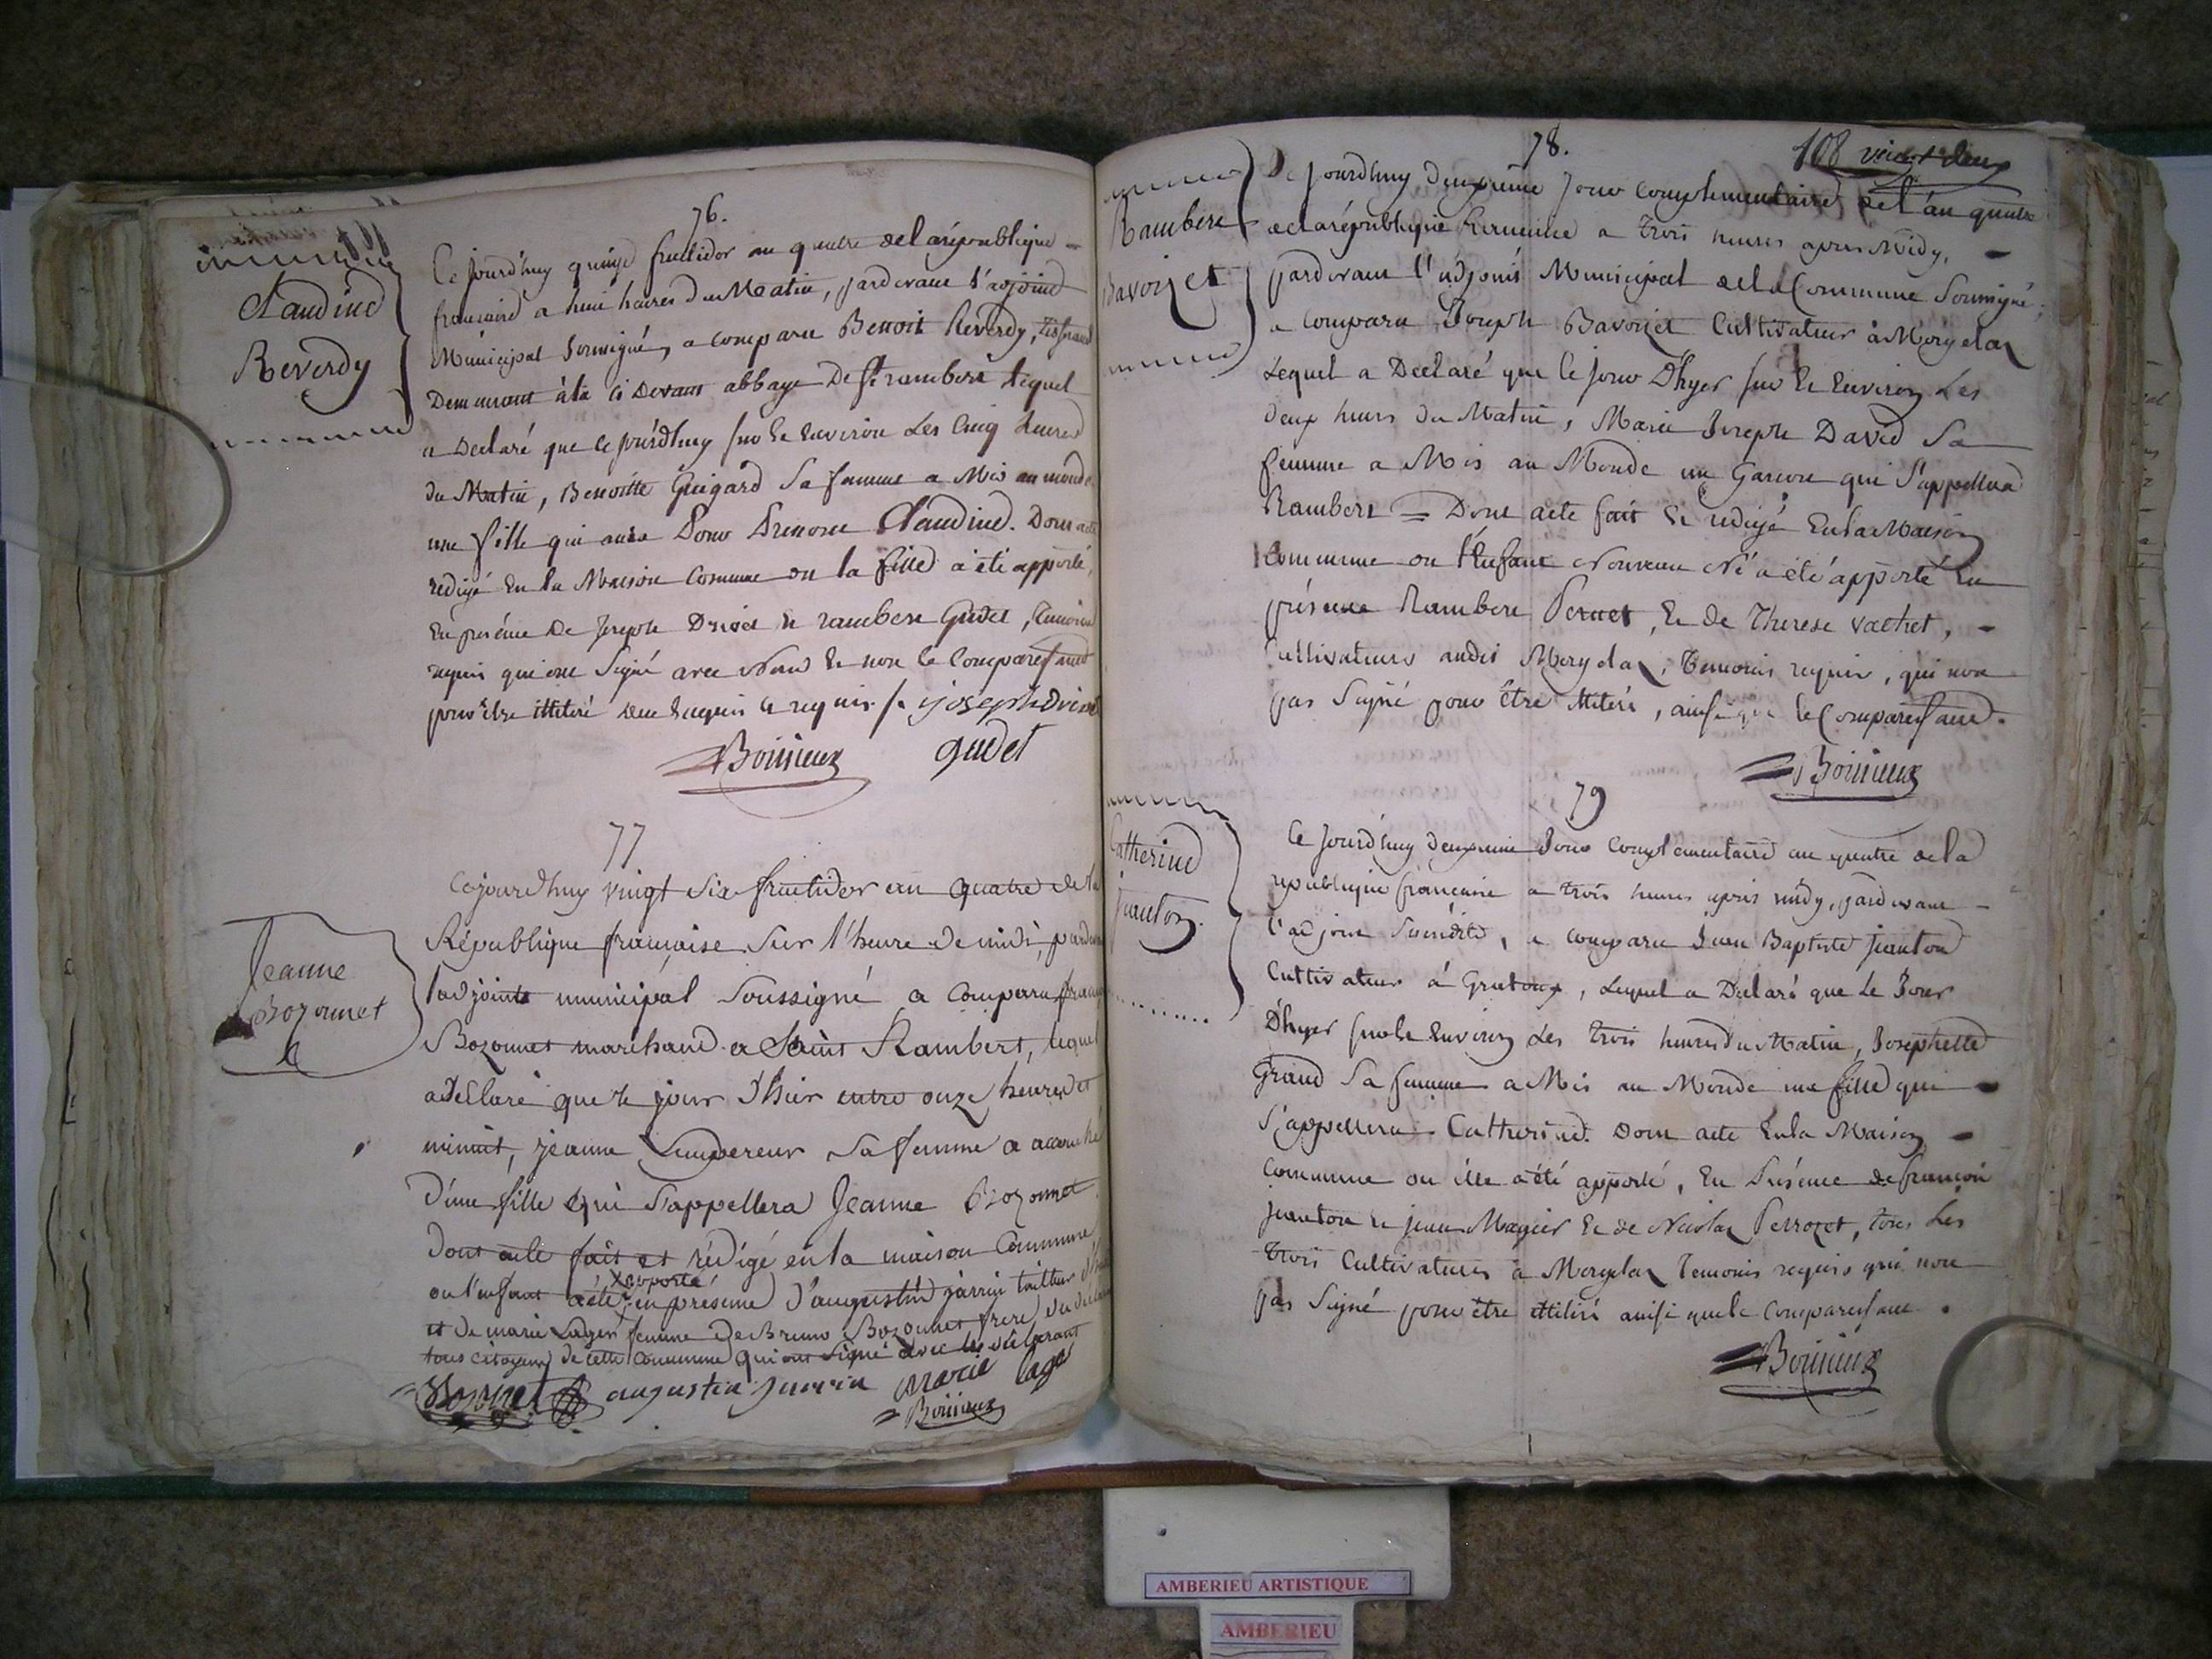 76.
Claudine
Reverdy
Ce jourd'huy quinze fructidor an quatre de la république
francaise a huit heures du Matin, pardevant l'adjoint
Municipal soussigné, a comparu Benoit Reverdy, tisserand
Demeurant à la ci Devant abbaye De St rambert lequel
a Déclaré que ce jourd'huy sur les environ Les Cinq heures
du Matin, Benoitte Guigard Sa femme a Mis au monde
une fille qui aura Pour Prenom Claudine. Dont acte
redigé En la Maison Commune ou la fille a été apporté,
En présence De Joseph Drivet et rambert Gudet, temoins
requis qui ont Signé avec Nous et non le Comparessant
pour être illiteré de ce Enquis et requis /. joseph Drivet
Boissieux gudet
77
Jeanne
Bozonnet
Cejourdhuy vingt six fructidor an quatre de la
République francaise Sur l'heure de midi, pardevant
l'adjoint municipal Soussigné a Comparu
Bozonnet marchand a Saint Rambert, lequel
a déclaré que le jour d'hier entre onze heures et
minuit, jeanne Lempereur Sa femme a accouché
d'une fille qui s'appellera Jeanne Bozonnet
Dont acte fait et rédigé en la maison Commune
ou l'enfant a été apporté en presence d'augustin jarrin tailleur
et de marie Lager femme de Bruno Bozonnet frere du
tous citoyens de cette Commune qui ont signé avec le déclarant
Bozonnet augustin jarrin marie lager
Boissieux
78.
108 vingt deux
Rambert
Bavozet
Ce jourdhuy Deuxieme Jour Complementaire de l'an quatre
de la république francaise a trois heures apres Midy,
pardevant l'adjoint Municipal de la Commune Soussigné,
a Comparu Joseph Bavozet Cultivateur à Morgelaz
Lequel a Declaré que le jour D'hyer sur les Environ Les
Deux heures du Matin, Marie Joseph David Sa
femme a Mis au Monde un Garcon qui S'appellera
Rambert = Dont acte fait et redigé En la Maison
Commune ou l'Enfant Nouveau Né a été apporté En
présence Rambert Pernet, Et de Therese vachet,
Cultivateurs audit Morgelaz, Temoins requis, qui non
pas Signé pour être illiteré, ainsi que le Comparessant.
Boissieux
79
Catherine
juanton
Ce jourd'huy Deuxieme Jour Complementaire an quatre de la
republique francaise a trois heures après midy, pardevant
l'adjoint Susdit, a comparu Jean Baptiste juanton
Cultivateur à Grattoux, Lequel a Declaré que Le Jour
D'hyer sur les Environ Les Trois heures du Matin, Josephette
Grand Sa femme a Mis au Monde une fille qui
S'appellera Catherine. Dont acte En la Maison
Commune ou elle a été apporté, En Présence de francois
juanton et jean Magnier Et de Nicolas Perrozet, tous Les
Trois Cultivateurs à Morgelaz Temoins requis qui non
pas Signé pour être illiteré ainsi que le Comparessant.
Boissieux
AMBERIEU ARTISTIQUE
AMBERIEU